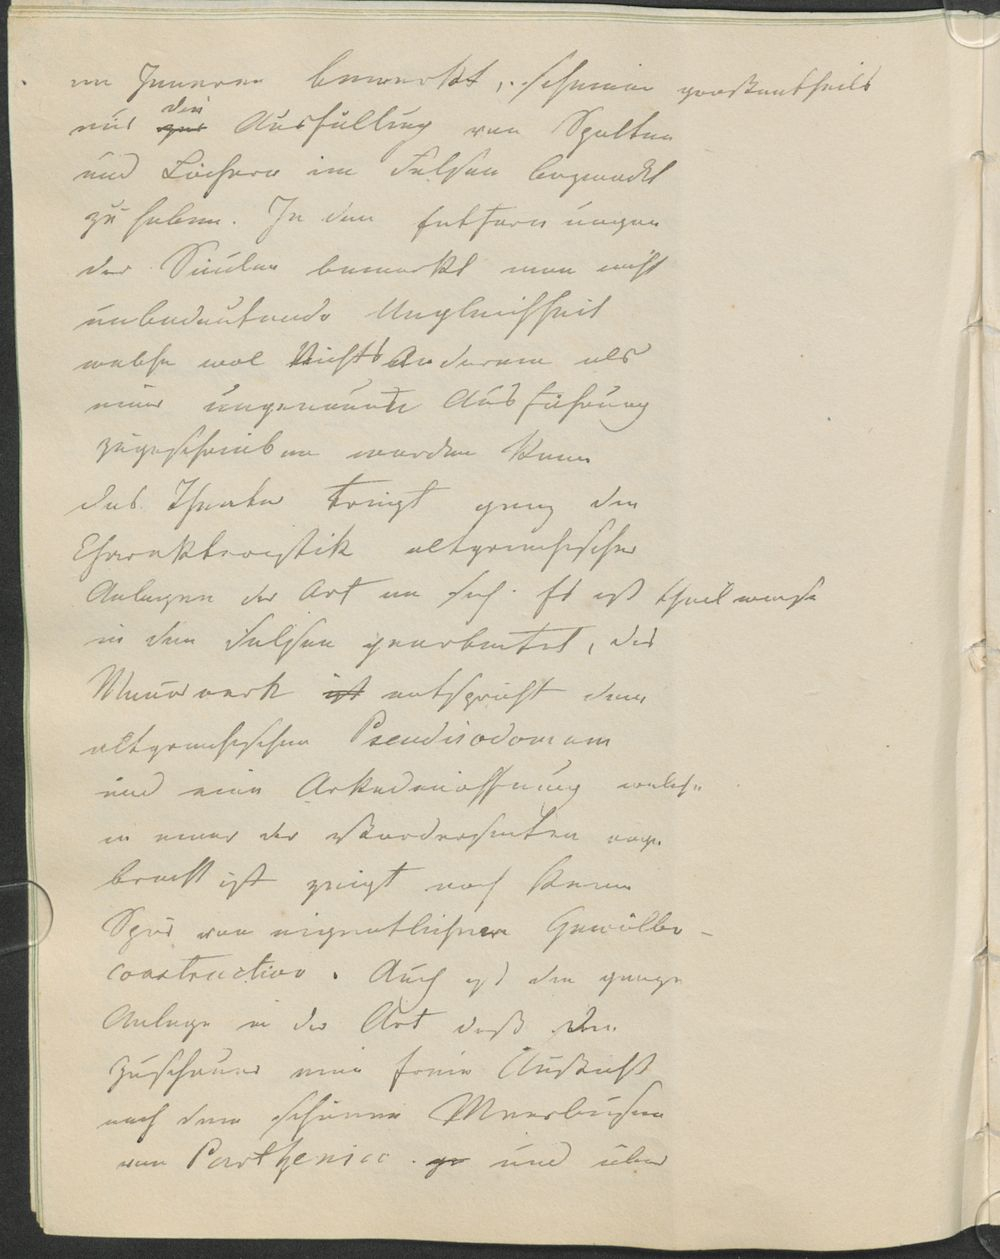 im Inneren bemerkt, scheinen grostentheils
nur die zur Ausfüllung von Spalten
und Löchern im Felsen bezweckt
zu haben. In den Entfernungen
der Säulen bemerkt man nicht
unbedeutende Ungleichheit
welche wol Nichts Anderem als
einer ungenauen Ausführung
zugeschrieben werden kann
das Theater trägt ganz die
Charakteristik altgriechischer
Anlagen der Art an sich. Es ist theilweise
in den Felsen gearbeitet, das
Mauerwerk ist entspricht dem
altgriechischen Pseudisodomum
und eine Arkadenöffnung welche
in einer der Vorderseiten ange
bracht ist zeigt noch keine
Spur von eigentlichem Gewölbe-
construction. Auch ist die ganze
Anlage in der Art daß den
Zuschauer eine freie Aussicht
nach dem schönen Meerbusen
von Parthenico und über